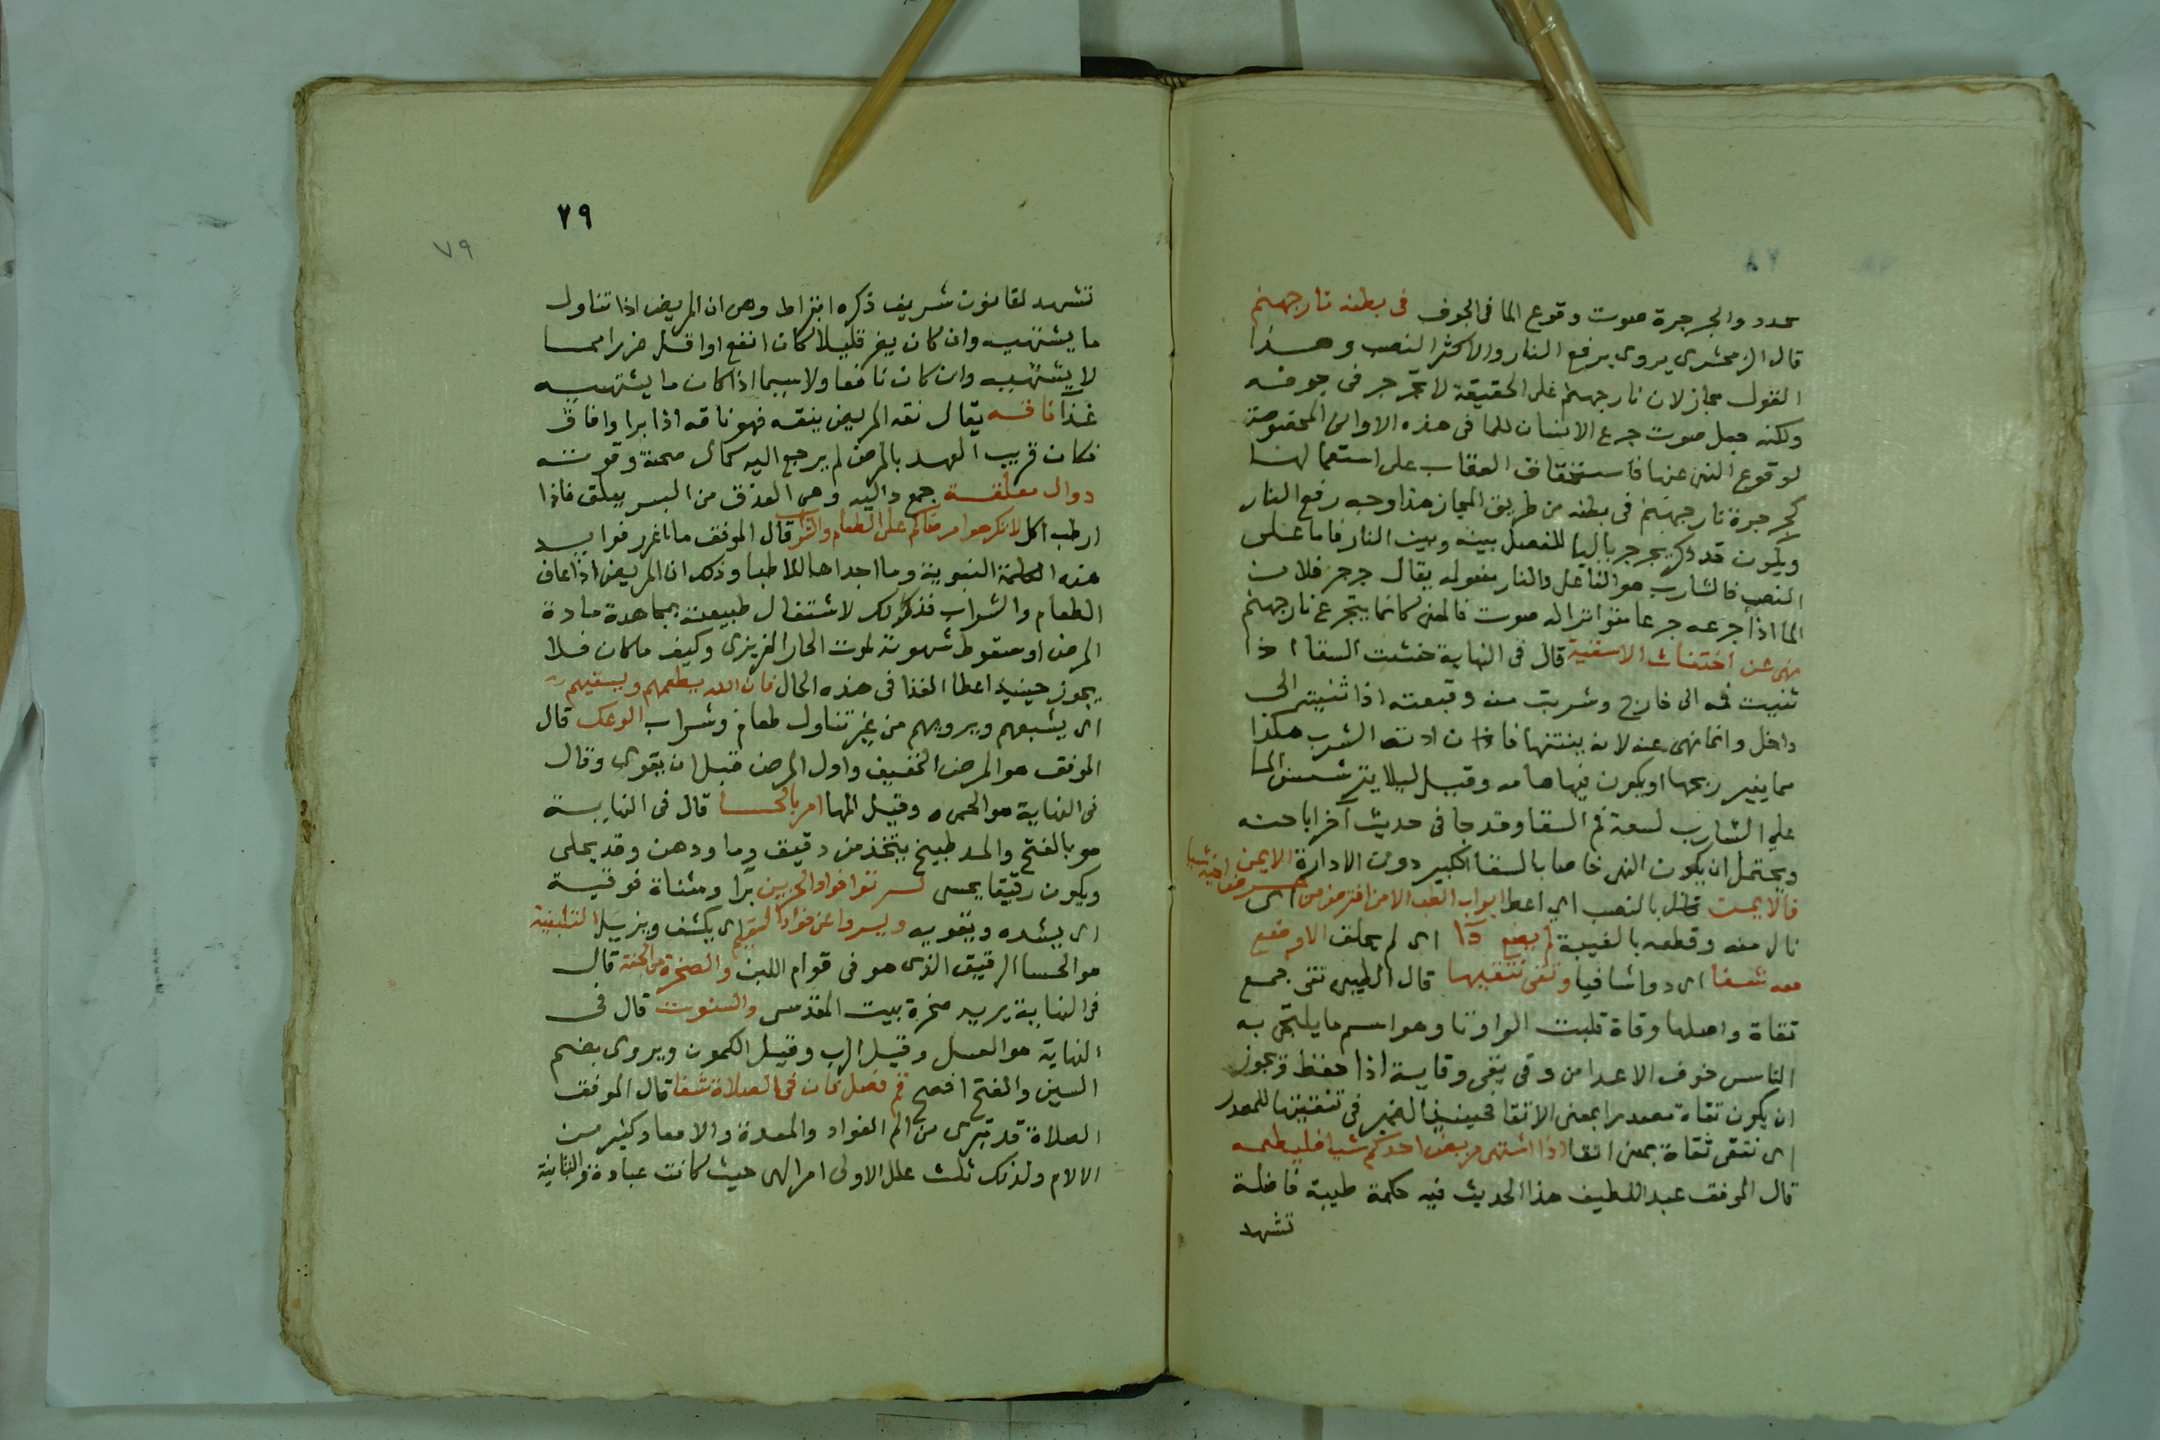 يحدر والجرجرة صوت وقوع الما فى الجوف فى بطنه نار جهنم
قال الزمخشرى يروى برفع النار والاكثر النصب وهذا
القول مجاز لان نار جهنم على الحقيقة لا تجرجر فى جوفه
ولكنه جعل صوت جرع الانسان للما فى هذه الاوانى المخصوصة
لوقوع النهى عنها فاستحقاق العقاب على استعمالها
كجرجرة نار جهنم فى بطنه من طريق المجاز هذا وجه رفع النار
ويكون قد ذكر يجرجر باليا للفصل بينه وبين النار فاما على
النصب فالشارب هو الفاعل والنار مفعوله يقال جرجر فلان
الما اذا جرعه جرعا متواترا له صوت فالمعنى كانما يتجرع نار جهنم
نهى عن اختناث الاسقية قال فى النهاية خنثت السقا اذا
ثنيت فمه الى خارج وشربت منه وقبعته اذا ثنيته الى
داخل وانما نهى عنه لانه ينتنها فان ادامة الشرب هكذا
مما يغير ريحها او يكون فيها هامه وقيل ليلا يترشش الما
على الشارب لسعة فم السقا وقد جا فى حديث آخر اباحته
ويحتمل ان يكون النهى خاصا بالسقا الكبير دون الادارة الايمن
فالايمن بالنصب اى اعط ابواب الطب الا من اقترض من عرض اخيه شيا اى
نال منه وقطعه بالغيبة لم يضع دآ اى لم يخلق الا وضع
معه شفا اى دوا شافيا وتقى نتقيها قال الطيبى تقى جمع
تقاة واصلها وقاة قلبت الواو تا وهو اسم ما يلتجى به
الناس خوف الاعدا من وقى يقى وقاية اذا حفظ ويجوز
ان يكون تقاة مصدرا بمعنى الاتقا فحينيذ الضمير فى نتقيها للمصدر
اى نتقى تقاة بمعنى اتقا اذا اشتهى مريض احدكم شيا فليطعمه
قال الموفق عبد اللطيف هذا الحديث فيه حكمة طيبة فاضلة
تشهد
٧٩
٧٩
تشهد لقانون شريف ذكره ابقراط وهى ان المريض اذا تناول
ما يشتهيه وان كان يضر قليلا كان انفع او اقل ضررا مما
لا يشتهيه وان كان نافعا ولا سيما اذا كان ما يشتهيه
غذا ناقه يقال نقه المريض ينقه فهو ناقه اذا برا وافاق
فكان قريب العهد بالمرض لم يرجع اليه كمال صحته وقوته
دوال معلقة جمع داليه وهى العذق من البسر يعلق فاذا
ارطب اكل لا تكرهوا مرضاكم على الطعام والشراب قال الموفق ما اغزر فوايد
هذه الكلمة النبوية وما اجداها للاطبا وذلك ان المريض اذا عاف
الطعام والشراب فذلك لاشتغال طبيعته بمجاهدة مادة
المرض او سقوط شهوته لموت الحار الغريزى وكيف ماكان فلا
يجوز حينيذ اعطا الغذا فى هذه الحال فان الله يطعمهم ويسقيهم
اى يشبعهم ويرويهم من غير تناول طعام وشراب الوعك قال
الموفق هو المرض الخفيف واول المرض قبل ان يقوى وقال
فى النهاية هو الحمى وقيل المها امر بالحسا قال فى النهاية
هو بالفتح والمد طبيخ يتخذ من دقيق وما ودهن وقد يحلى
ويكون رقيقا يحسى ليرتوا فواد الحزين برا ومثناة فوقية
اى يشده ويقويه ويسروا عن فواد السقيم اى يكشف ويزيل التلبينة
هو الحسا الرقيق الذى هو فى قوام اللبن والصخرة من الجنة قال
فى النهاية يريد صخرة بيت المقدس والسنوت قال فى
النهاية هو العسل وقيل الرب وقيل الكمون ويروى بضم
السين والفتح افصح قم فصل فان فى الصلاة شفا قال الموفق
الصلاة قد تبرى من الم الفواد والمعدة والامعا وكثير من
الالام ولذلك ثلث علل الاولى امر الهى حيث كانت عبادة والثانية